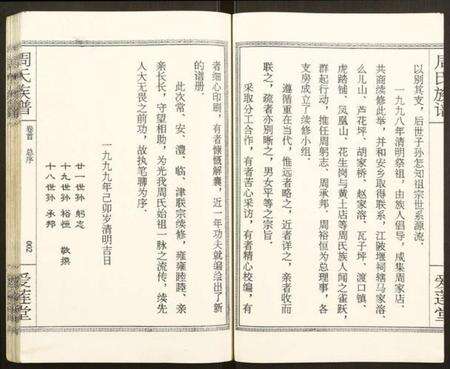 周氏族谱
以别其支，后世子孙怎知祖宗世系源流。
一九九八年清明祭祖，由族人倡导，咸集周家店，
共商续修此举，并和安乡取得联系，江陂堰祠辖马家洛、
么儿山、芦花坪、胡家桥、赵家洛、瓦子坪、渡口镇、
虎踏铺、凤凰山、花生岗与黄土店等周氏族人闻之雀跃，
群起行动，推任周躬志、周承邦、周裕恒为总理事，各
支房成立了续修小组。
遵循重在当代，惟远者略之，近者详之，亲者收而
联之，疏者亦别晰之，男女平等之宗旨。
采取分工合作，有者苦心采访，有者精心校编，有
爱莲堂
者细心印刷，有者慷慨解囊，近一年功夫就编绘出了新
的谱册。
此次常、安、澧、临、津联宗续修，雍雍睦睦，亲
亲长长，守望相助，为光我周氏始祖一脉之流传，续先
人大无畏之前功，故执笔聊为序。
一九九九年己卯岁清明吉日
廿一世孙 躬志
十九世孙 裕恒 敬撰
十八世孙 承邦
周氏族谱
卷首 总序
002
爱莲堂